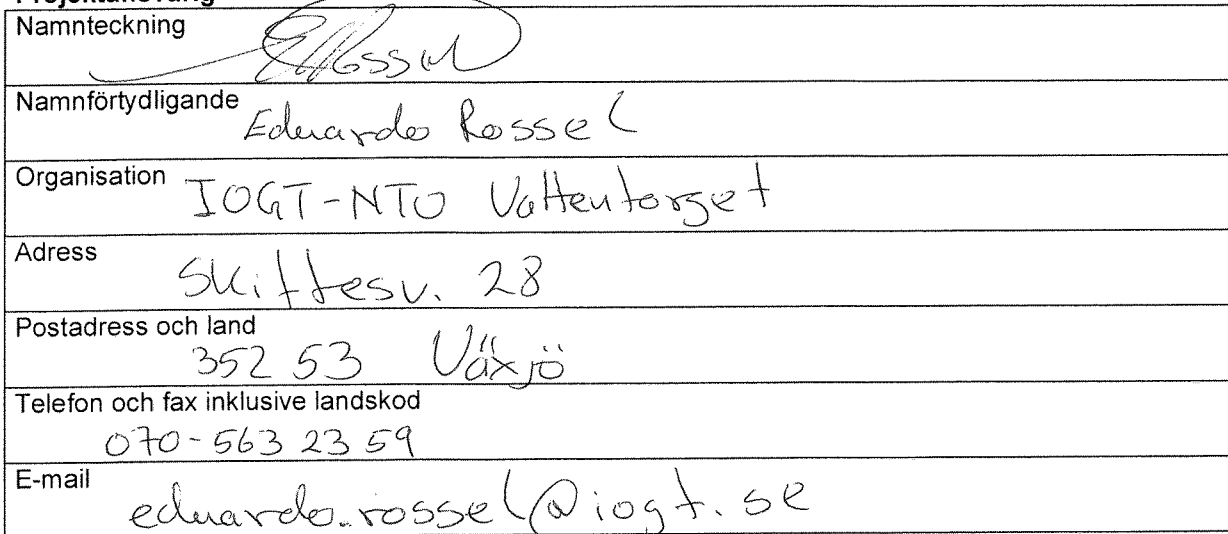 Projektansvarig
Namnteckning
Namnförtydligande Eduardo Rossel
Organisation IOGT-NTO Vattentorget
Adress
Skiftesv. 28
Postadress och land
352 53 Växjö
Telefon och fax inklusive landskod
070-563 23 59
E-mail
eduardo.rossel@iogt.se